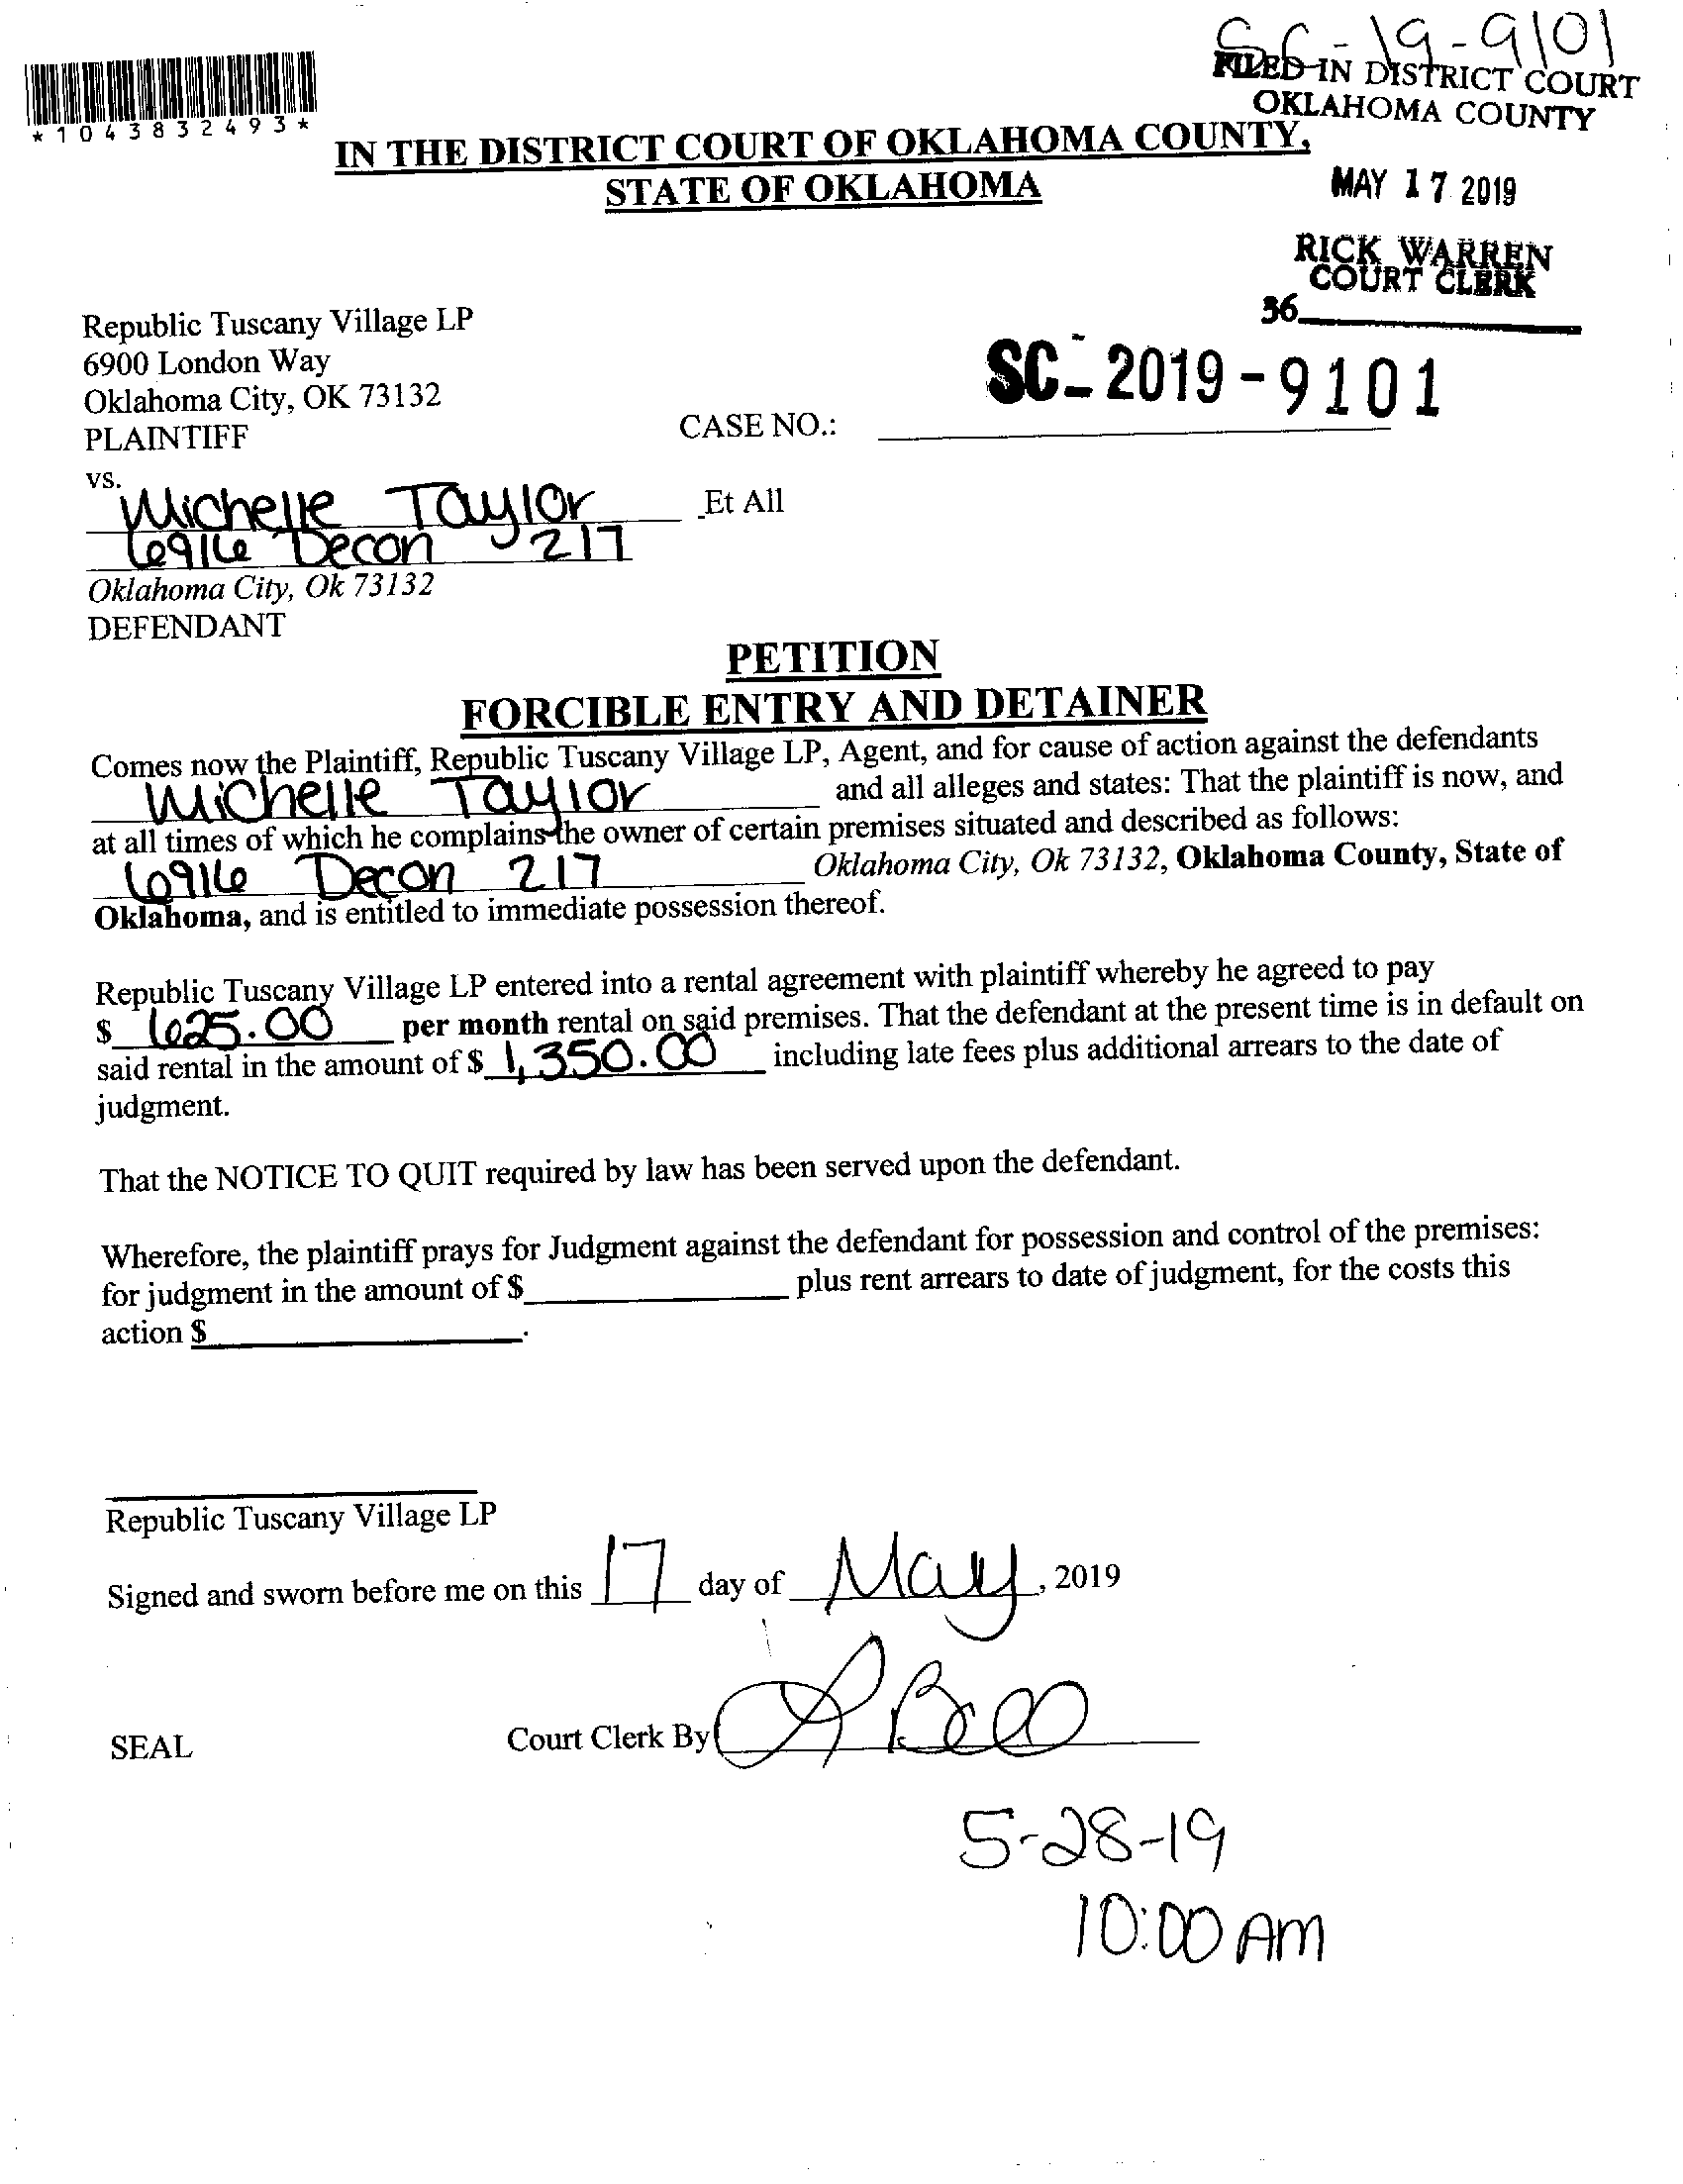 SC-19-9101
FILED IN DISTRICT COURT
OKLAHOMA COUNTY
*1043832493*
IN THE DISTRICT COURT OF OKLAHOMA COUNTY,
STATE OF OKLAHOMA
MAY 17 2019
RICK WARREN
COURT CLERK
36
Republic Tuscany Village LP
6900 London Way
Oklahoma City, OK 73132
PLAINTIFF
CASE NO.: SC-2019-9101
vs.
Michelle Taylor Et All
6916 Decon 217
Oklahoma City, Ok 73132
DEFENDANT
PETITION
FORCIBLE ENTRY AND DETAINER
Comes now the Plaintiff, Republic Tuscany Village LP, Agent, and for cause of action against the defendants
Michelle Taylor and all alleges and states: That the plaintiff is now, and
at all times of which he complains the owner of certain premises situated and described as follows:
6916 Decon 217 Oklahoma City, Ok 73132, Oklahoma County, State of
Oklahoma, and is entitled to immediate possession thereof.
Republic Tuscany Village LP entered into a rental agreement with plaintiff whereby he agreed to pay
$ 625.00 per month rental on said premises. That the defendant at the present time is in default on
said rental in the amount of $ 1,350.00 including late fees plus additional arrears to the date of
judgment.
That the NOTICE TO QUIT required by law has been served upon the defendant.
Wherefore, the plaintiff prays for Judgment against the defendant for possession and control of the premises:
for judgment in the amount of $ plus rent arrears to date of judgment, for the costs this
action $ .
Republic Tuscany Village LP
Signed and sworn before me on this 17 day of May, 2019
SEAL Court Clerk By
5-28-19
10:00 AM